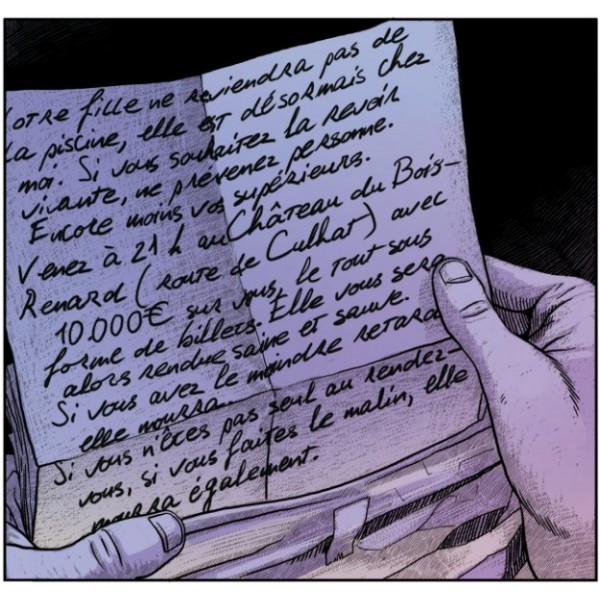 Votre fille ne reviendra pas de
la piscine, elle est désormais chez
moi. Si vous souhaitez la revoir
vivante, ne prévenez personne.
Encore moins vos supérieurs.
Venez à 21 h au Château du Bois-
Renard (route de Culhat) avec
10.000€ sur vous, le tout sous
forme de billets. Elle vous sera
alors rendue saine et sauve.
Si vous avez le moindre retard
elle mourra.
Si vous n'êtes pas seul au rendez-
vous, si vous faites le malin, elle
mourra également.